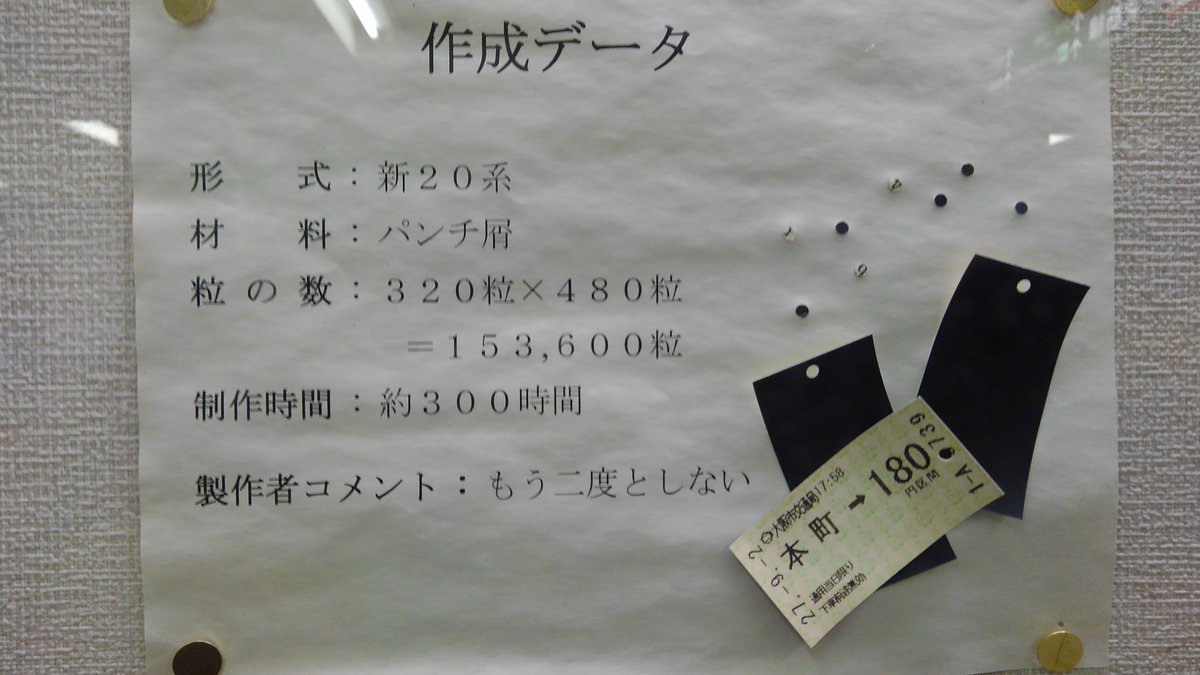 作成データ
形　式：新２０系
材　料：パンチ屑
粒の数：３２０粒×４８０粒
＝１５３,６００粒
制作時間：約３００時間
製作者コメント：もう二度としない
1-A 0739
本町→180円区間
大阪市交通局17:58
27.-9.-2
通用当日限り
下車前途無効